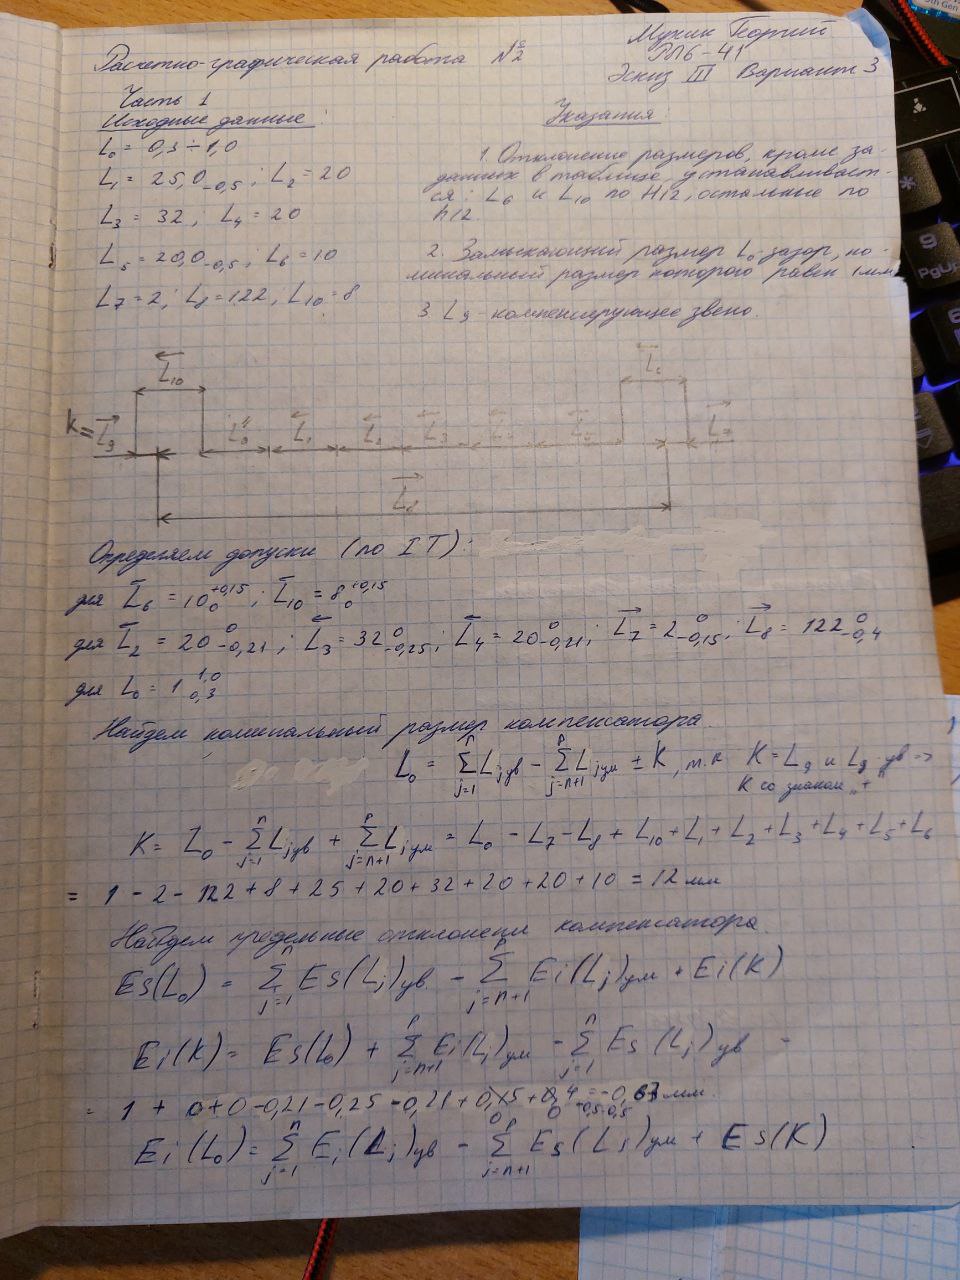 Мукин Георгий
РЛ6-41
Эскиз III Вариант 3
Расчетно-графическая работа №2
Часть 1
Исходные данные:
L₀ = 0,3 ÷ 1,0
L₁ = 25,0₋₀,₅ ; L₂ = 20
L₃ = 32 ; L₄ = 20
L₅ = 20,0₋₀,₅ ; L₆ = 10
L₇ = 2 ; L₈ = 122 ; L₁₀ = 8
Указания:
1. Отклонение размеров, кроме за-
данных в таблице, устанавливает-
ся: L₆ и L₁₀ по H12, остальные по
h12.
2. Замыкающий размер L₀ зазор, но-
минальный размер которого равен 1 мм
3. L₉ - компенсирующее звено.
L₁₀
K = L₉ L₀ L₁ L₂ L₃ L₇
L₈
Определяем допуски (по IT):
для L₆ = 10 +0,15 0 ; L₁₀ = 8 +0,15 0
для L₂ = 20 0 -0,21 ; L₃ = 32 0 -0,25 ; L₄ = 20 0 -0,21 ; L₇ = 2 0 -0,15 ; L₈ = 122 0 -0,4
для L₀ = 1 1,0 0,3
Найдем номинальный размер компенсатора
L₀ = Σ j=1 n Lj ув - Σ j=n+1 p Lj ум ± K, т.к K = L₉ и L₉ ув =>
K со знаком "+"
K = L₀ - Σ j=1 n Lj ув + Σ j=n+1 p Lj ум = L₀ - L₇ - L₈ + L₁₀ + L₁ + L₂ + L₃ + L₄ + L₅ + L₆
= 1 - 2 - 122 + 8 + 25 + 20 + 32 + 20 + 20 + 10 = 12 мм
Найдем предельные отклонени компенсатора.
Es(L₀) = Σ j=1 n Es(Lj) ув. - Σ j=n+1 p Ei(Lj) ум + Ei(K)
Ei(K) = Es(L₀) + Σ j=n+1 p Ei(Lj) ум - Σ j=1 n Es(Lj) ув =
= 1 + 0 + 0 - 0,21 - 0,25 - 0,21 -0,5-0,5 = -0,67 мм.
Ei(L₀) = Σ j=1 n Ei(Lj) ув - Σ j=n+1 p Es(Lj) ум + Es(K)